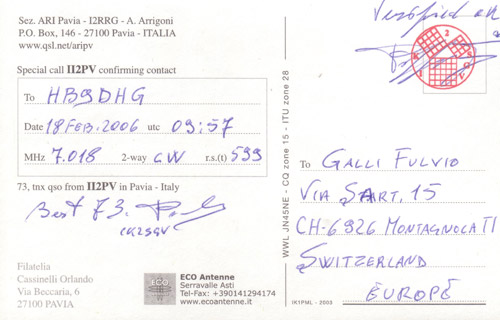 Sez. ARI Pavia - I2RRG - A. Arrigoni
P.O. Box, 146 - 27100 Pavia - ITALIA
www.qsl.net/aripv
Special call II2PV confirming contact
To HB9DHG
Date 18 FEB. 2006 utc 09:57
MHz 7.018 2-way CW r.s.(t) 599
73, tnx qso from II2PV in Pavia - Italy
Best 73.
Filatelia
Cassinelli Orlando
Via Beccaria, 6
27100 PAVIA
ECO
ECO Antenne
Serravalle Asti
Tel-Fax: +390141294174
www.ecoantenne.it
WWL JN45NE - CQ zone 15 - ITU zone 28
Verified OK
To GALLI FULVIO
VIA SART, 15
CH-6926 MONTAGNOLA TI
SWITZERLAND
EUROPE
IK1PML - 2003